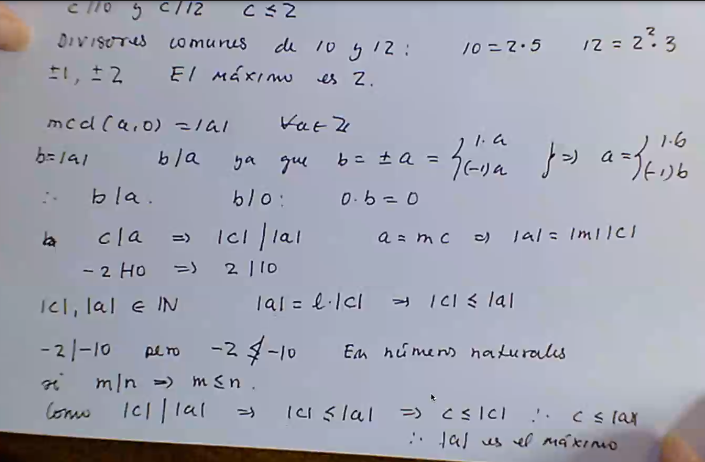 c/10 y c/12 c ≤ 2
Divisores comunes de 10 y 12: 10 = 2·5 12 = 2²·3
±1, ±2 El máximo es 2.
mcd(a,0) = |a| ∀a∈ℤ
b=|a| b/a ya que b = ±a = { 1·a (-1)a } => a = { 1·b (-1)b
∴ b/a. b/0: 0·b = 0
c/a => |c| / |a| a = mc => |a| = |m||c|
-2/10 => 2/10
|c|, |a| ∈ ℕ |a| = l·|c| => |c| ≤ |a|
-2/-10 pero -2 ≰ -10 En números naturales
si m/n => m ≤ n.
Como |c| / |a| => |c| ≤ |a| => c ≤ |c| ∴ c ≤ |a|
∴ |a| es el máximo